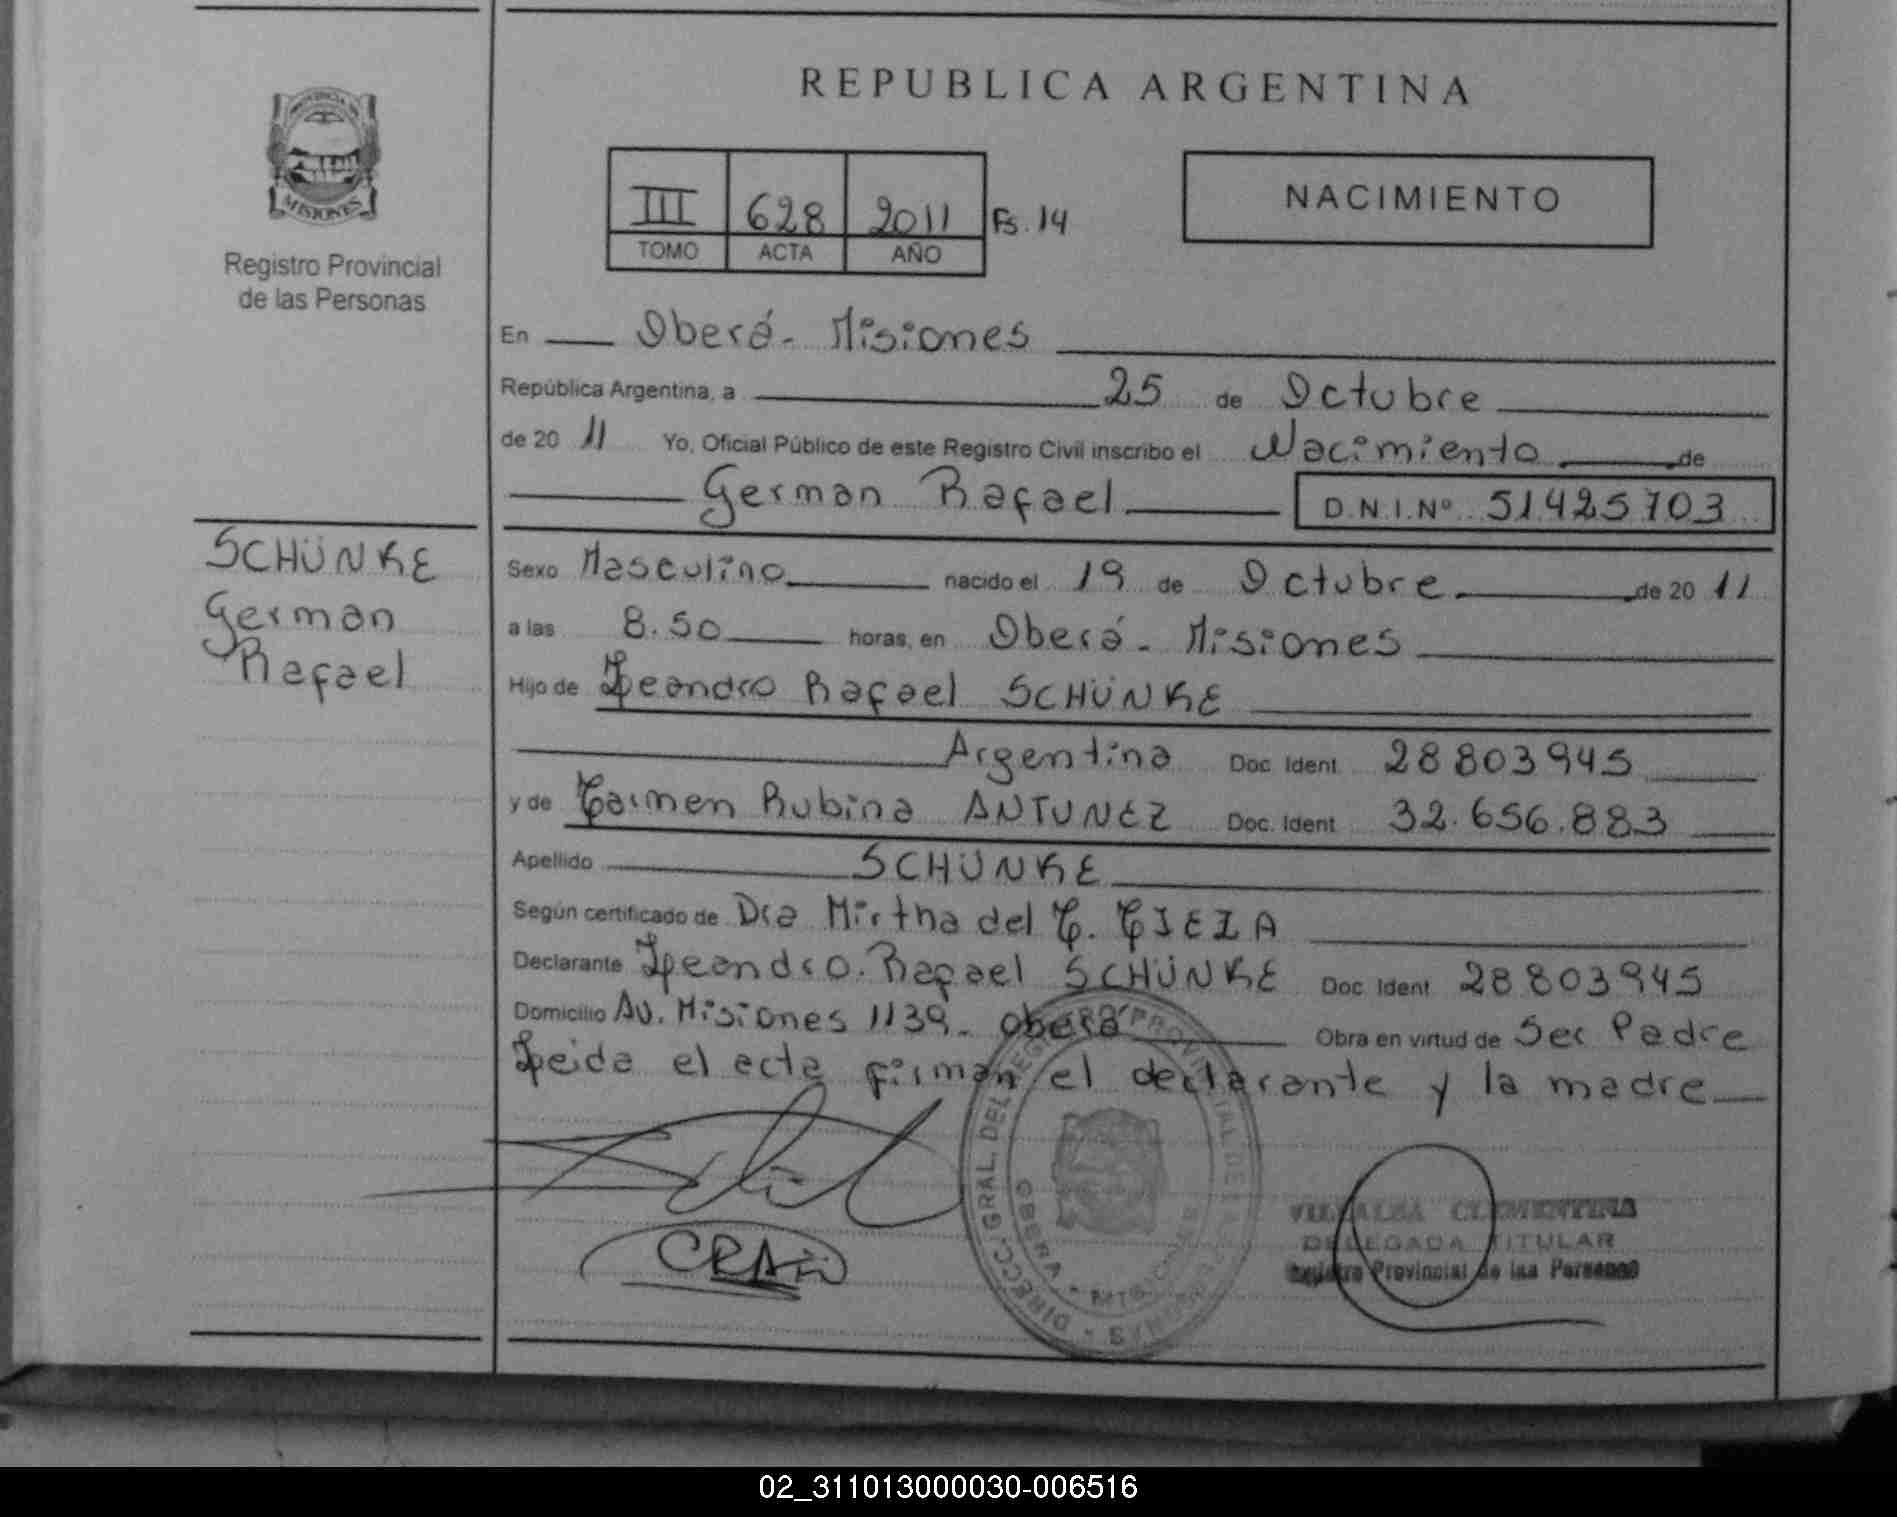 REPUBLICA ARGENTINA
PROVINCIA DE
MISIONES
Registro Provincial
de las Personas
III 628 2011 Fs. 14
TOMO ACTA AÑO
NACIMIENTO
En Oberá - Misiones
República Argentina, a 25 de Octubre
de 20 11 Yo, Oficial Público de este Registro Civil inscribo el Nacimiento de
German Rafael D.N.I. Nº 51425703
SCHÜNKE
German
Rafael
Sexo Masculino nacido el 19 de Octubre de 20 11
a las 8.50 horas, en Oberá - Misiones
Hijo de Leandro Rafael SCHÜNKE
Argentina Doc. Ident. 28803945
y de Carmen Rubina ANTUNEZ Doc. Ident. 32.656.883
Apellido SCHÜNKE
Según certificado de Dra Mirtha del C. CIEZA
Declarante Leandro Rafael SCHÜNKE Doc. Ident. 28803945
Domicilio Av. Misiones 1139 - Oberá Obra en virtud de Ser Padre
Leida el acta firman el declarante y la madre
DIRECC. GRAL. DEL REGISTRO PROVINCIAL DE LAS PERSONAS
MISIONES
VILLALBA CLEMENTINA
DELEGADA TITULAR
Registro Provincial de las Personas
02_311013000030-006516